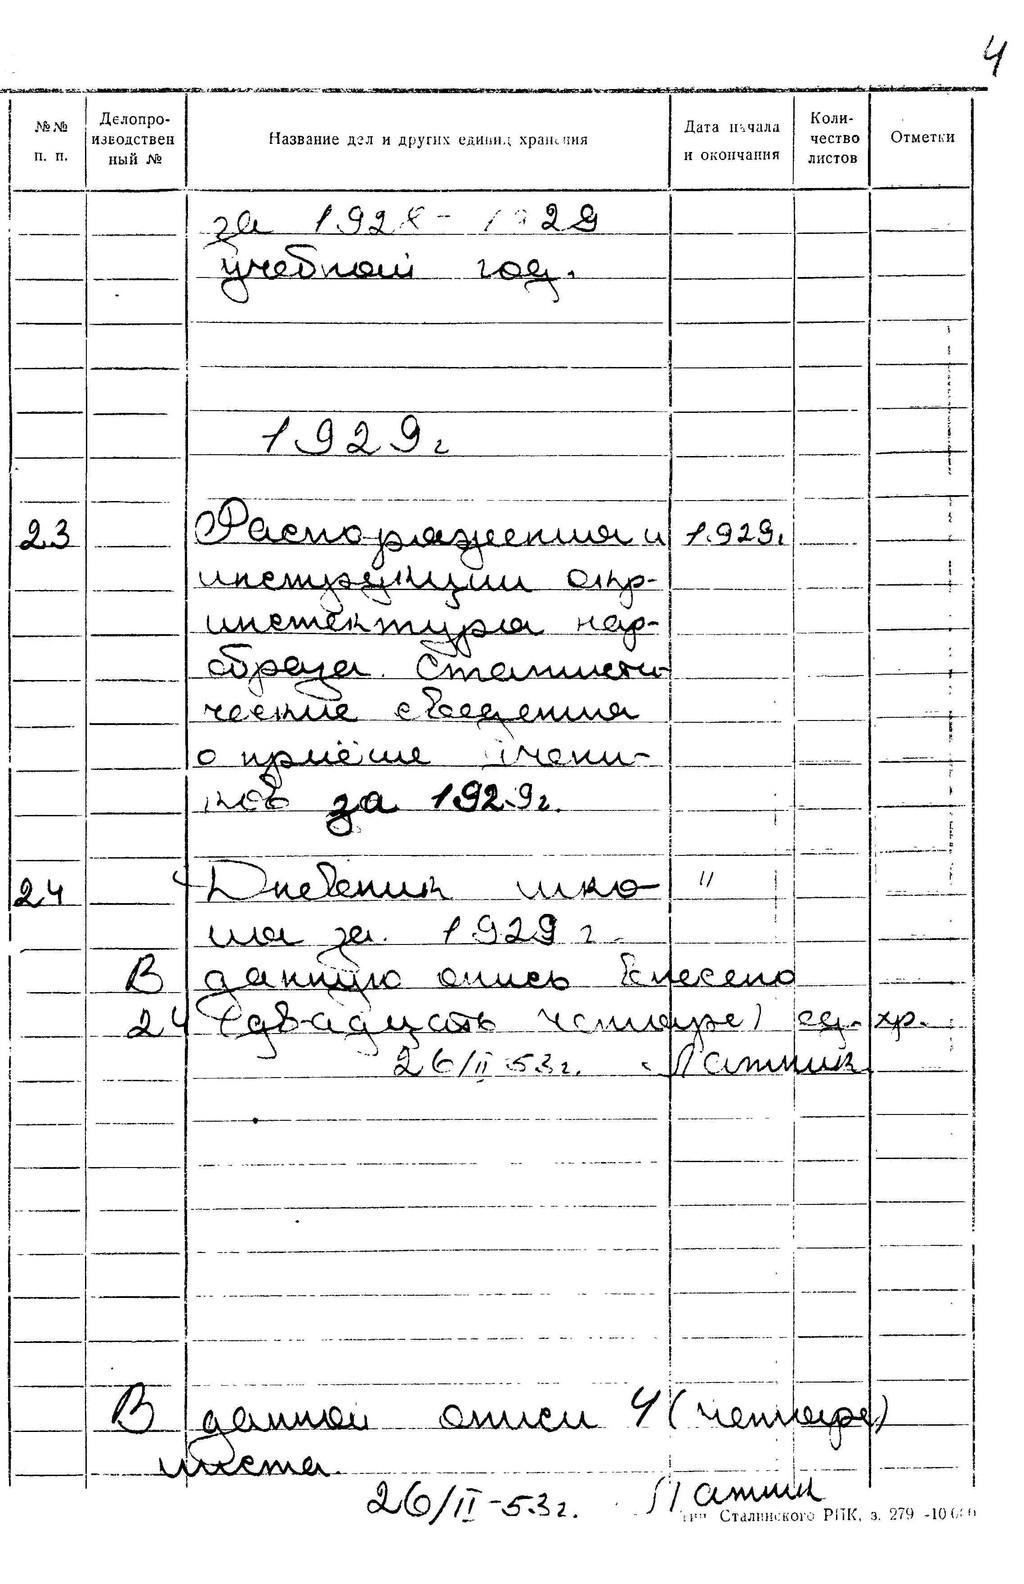 4
№№ п. п. Делопро-изводствен ный № Название дел и других единиц хранения Дата начала и окончания Коли-чество листов Отметки
за 1928 - 1929
учебный год.
1929 г
23 Распоряжения и 1929г.
инструкции окр-
инспектура нар-
образа. Статисти-
ческие сведения
о приёме учени-
ков за 1929г.
24 Дневник шко- "
лы за 1929 г.
В данную опись внесено
24 (двадцать четыре) ед. хр.
26/II-53г.
В данной описи 4 (четыре)
листа.
26/II-53г.
тип Сталинского РПК, з. 279